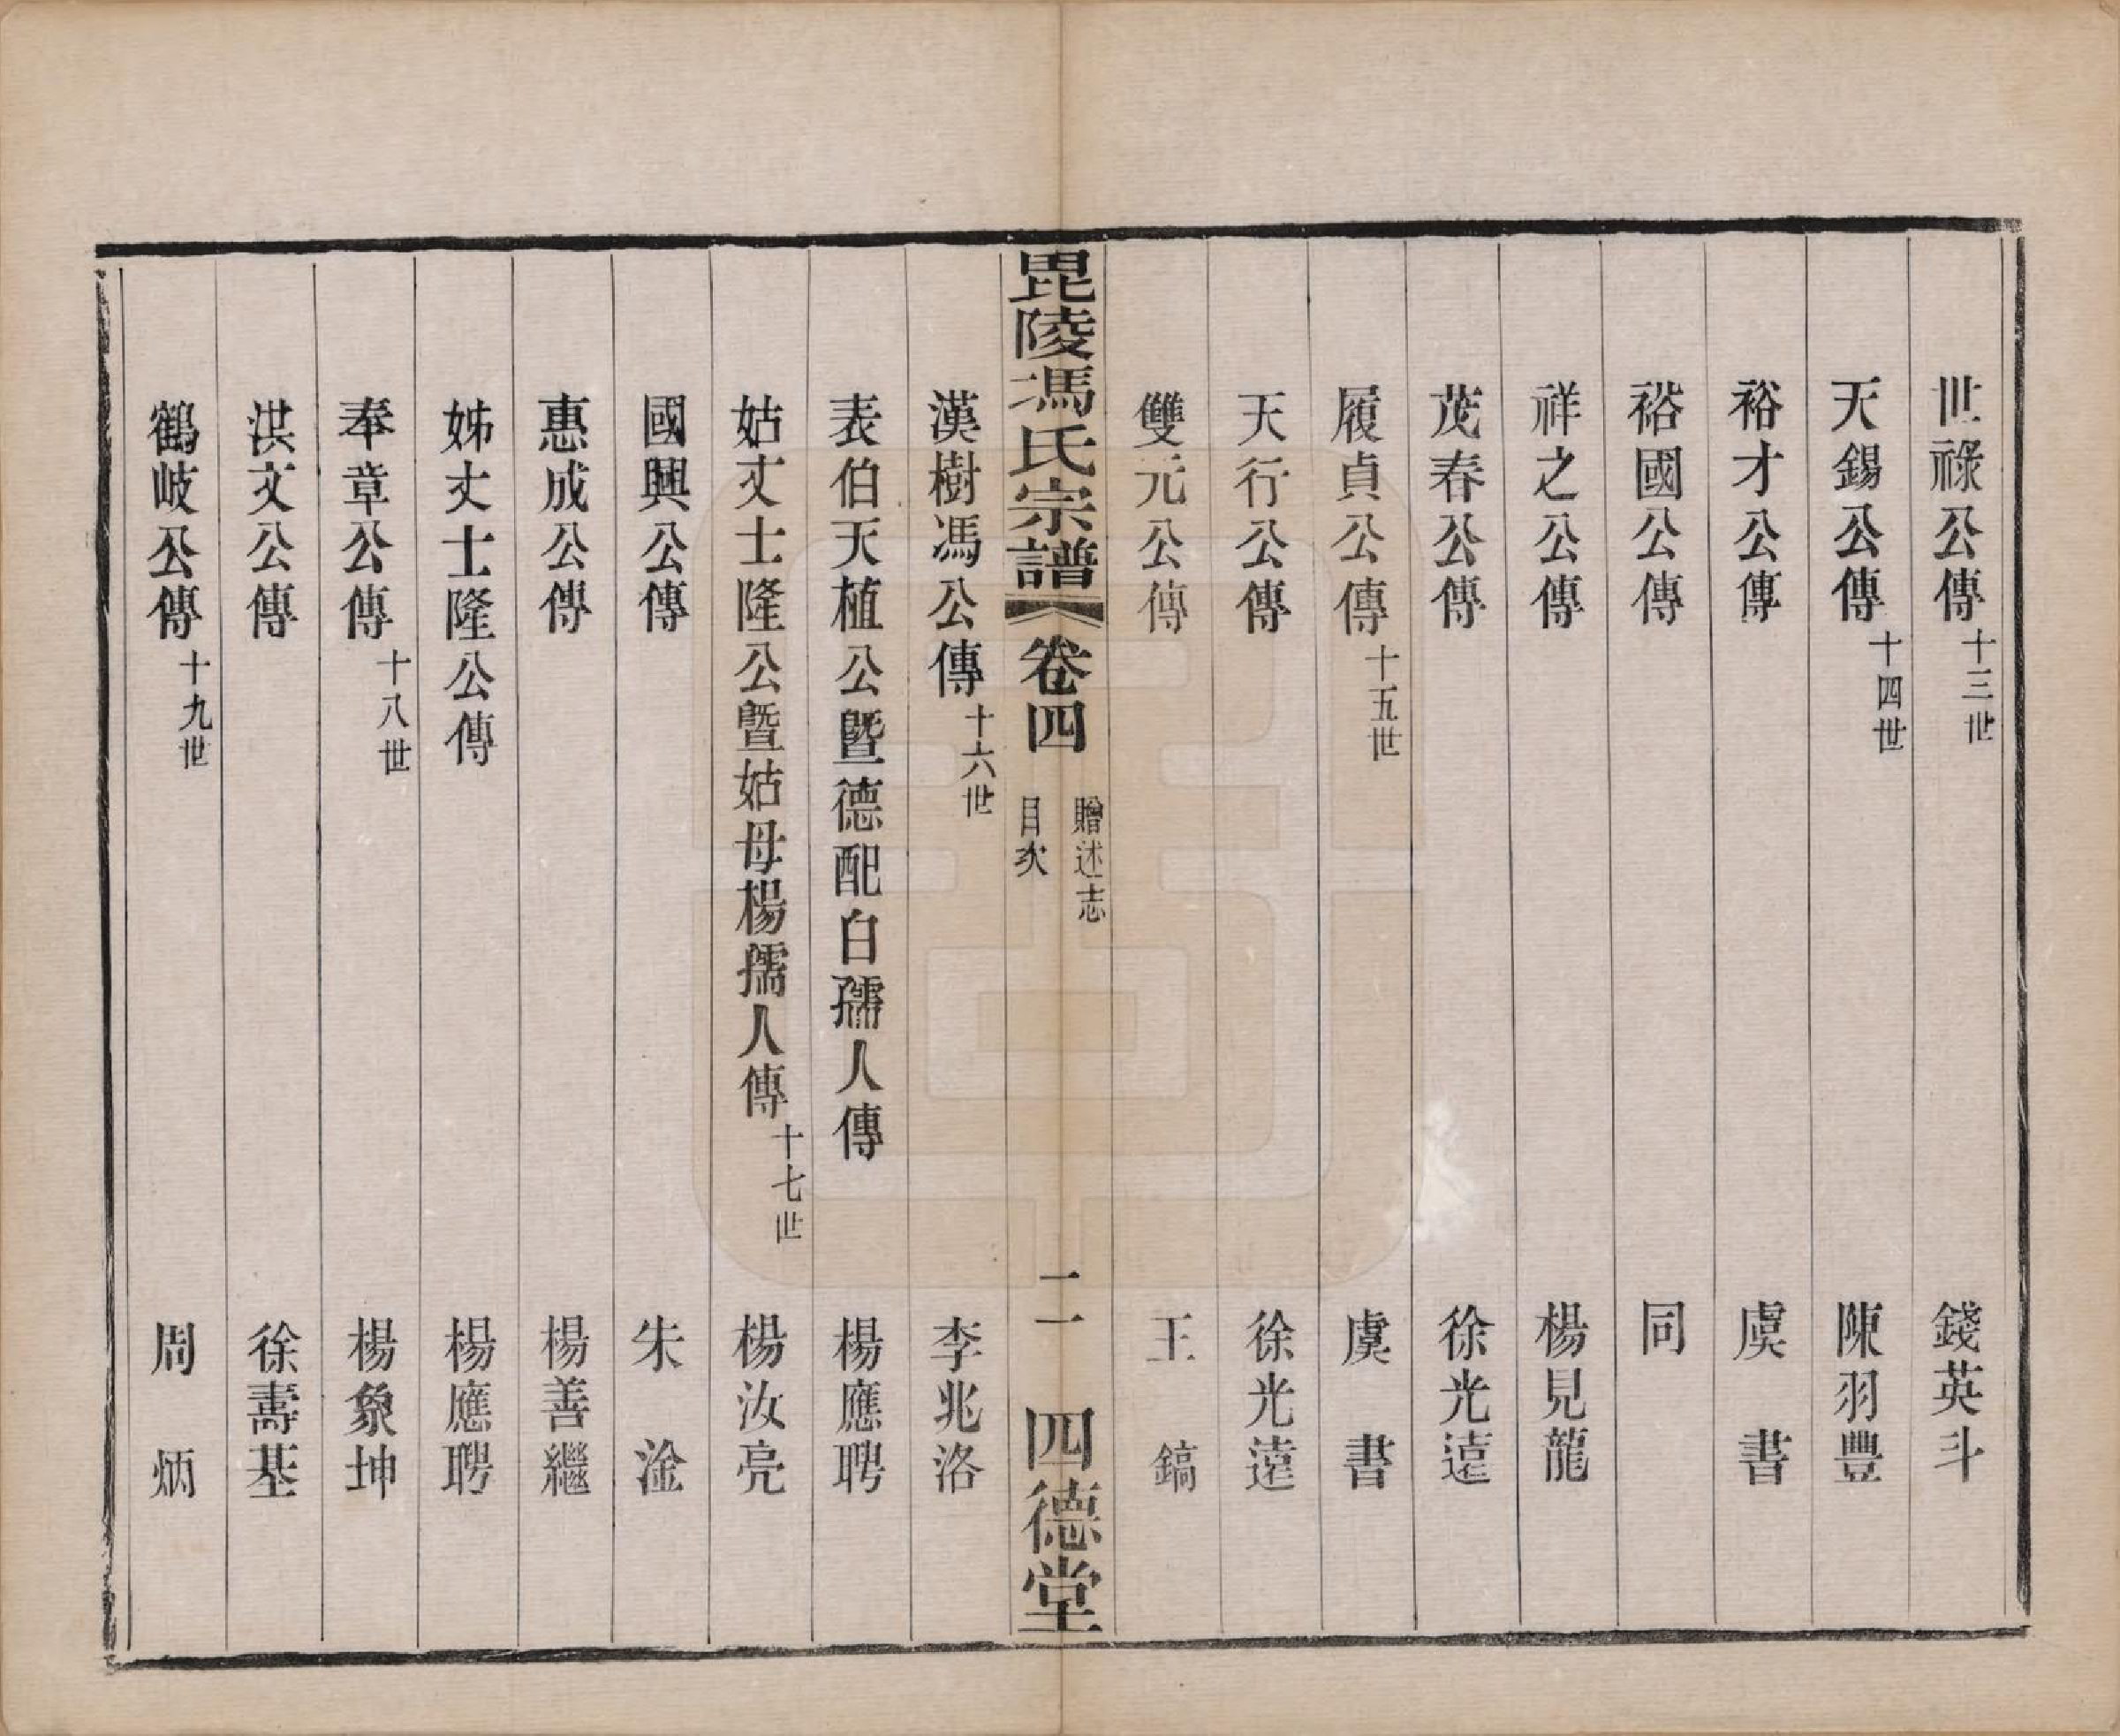 世祿公傳十三世　錢英斗
天錫公傳十四世　陳羽豐
裕才公傳　虞書
裕國公傳　同
祥之公傳　楊見龍
茂春公傳　徐光遠
履貞公傳十五世　虞書
天行公傳　徐光遠
雙元公傳　王鎬
毘陵馮氏宗譜　卷四　贈述志　目次　二　四德堂
漢樹馮公傳十六世　李兆洛
表伯天植公暨德配白孺人傳　楊應聘
姑丈士隆公暨姑母楊孺人傳十七世　楊汝亮
國興公傳　朱淦
惠成公傳　楊善繼
姊丈士隆公傳　楊應聘
奉章公傳十八世　楊象坤
洪文公傳　徐壽基
鶴岐公傳十九世　周炳